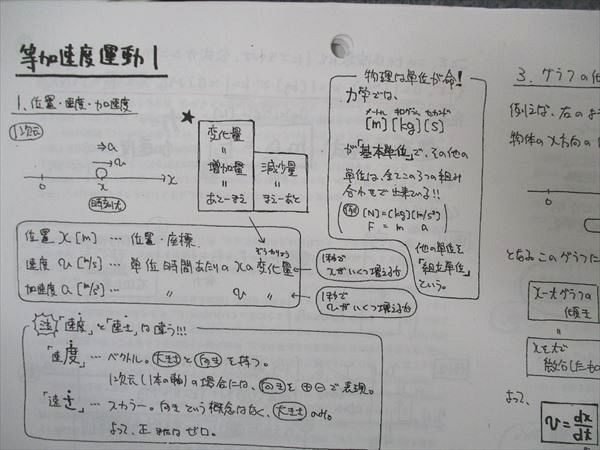 等加速度運動1
1. 位置・速度・加速度
1次元
→a
→v
0
x
x
時刻t
★
変化量
〃
増加量
〃
あと−まえ
減少量
〃
まえ−あと
物理は単位が命!
力学では、
メートル キログラム セカンド
[m] [kg] [s]
が「基本単位」で、その他の
単位は、全てこの3つの組み
合わせで出来ている!!
例 [N]=[kg][m/s²]
F = m a
他の単位を
「組立単位」
という。
位置 x [m] … 位置・座標
ぞうかりょう
速度 v [m/s] … 単位時間あたりの xの変化量
加速度 a [m/s²] … 〃 v 〃
1秒で
xがいくつ増えるか
1秒で
vがいくつ増えるか
注 「速度」と「速さ」は違う!!!
「速度」… ベクトル。大きさと向きを持つ。
1次元(1本の軸)の場合には、向きを⊕⊖で表現。
「速さ」… スカラー。向きという概念はなく、大きさのみ。
よって、正またはゼロ。
3. グラフの
例えば、左のよう
物体のx方向の
0
となる このグラフに
x−tグラフの
傾き
〃
xをtで
微分したもの
よって、
v = dx/dt